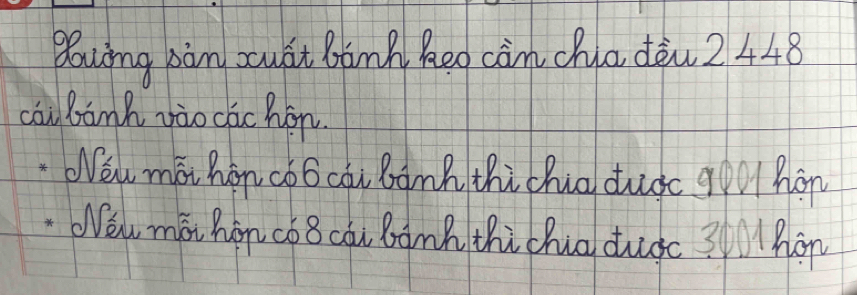 Xưởng sản xuất bánh kẹo cần chia đều 2 448
cái bánh vào các hộp.
* Nếu mỗi hộp có 6 cái bánh thì chia được 9001 hộp
* Nếu mỗi hộp có 8 cái bánh thì chia được 3001 hộp